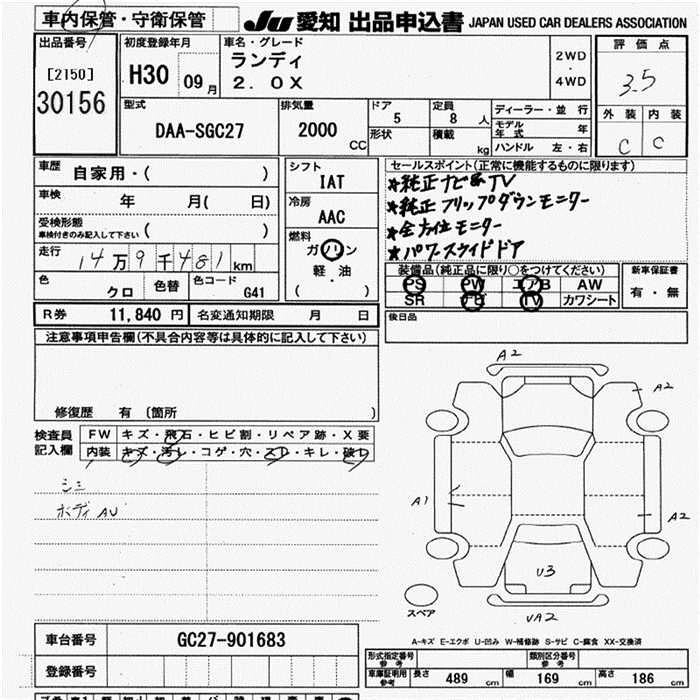 車内保管・守衛保管 JU 愛知 出品申込書 JAPAN USED CAR DEALERS ASSOCIATION
出品番号 初度登録年月 車名・グレード 評価点
[2150] H30 09月 ランディ 2WD・4WD 3.5
30156 2.0X
外装 内装
型式 排気量 ドア 5 定員 8人 ディーラー・並行 C C
DAA-SGC27 2000 CC 形状 積載 kg モデル年式 年
ハンドル 左・右
車歴 自家用・( ) シフト IAT セールスポイント(正常に機能するものに限ります)
車検 年 月( 日) 冷房 AAC ★純正ナビ&TV
★純正フリップダウンモニター
受検形態 車検付きのみ記入して下さい ( ) 燃料 ガソリン ★全方位モニター
走行 14万9千481km 軽・油 ★パワースライドドア
( )
装備品(純正品に限り○をつけてください) 新車保証書
色 クロ 色替 色コード G41 PS PW エアB AW 有・無
SR ナビ TV カワシート
R券 11,840円 名変通知期限 月 日 後日品
注意事項申告欄(不具合内容等は具体的に記入して下さい)
修復歴 有 (箇所 )
検査員記入欄 FW キズ・飛石・ヒビ割・リペア跡・X要
内装 キズ・汚レ・コゲ・穴・スレ・キレ・破レ
シミ
ボディ AU
A2
A2
A1
A2
U3
スペア
UA2
A-キズ E-エクボ U-凹み W-補修跡 S-サビ C-腐食 XX-交換済
車台番号 GC27-901683
登録番号
形式指定番号 参考 類別区分番号 参考
車庫証明用 参考 長さ 489 cm 幅 169 cm 高さ 186 cm